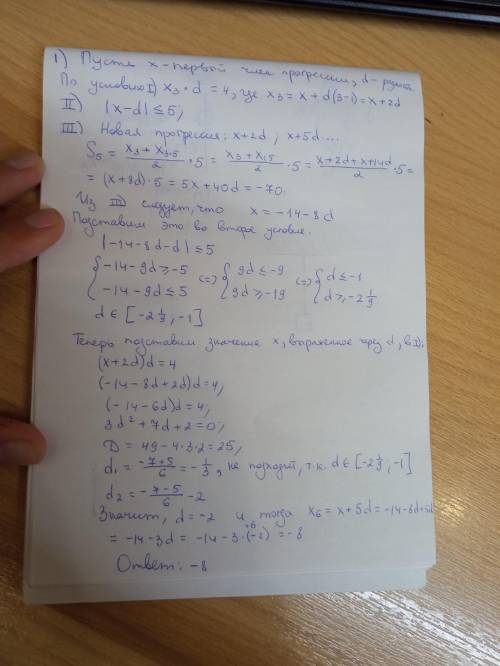 1) Пусть x - первый член прогрессии, d - разность.
По условию I) x₃ · d = 4, где x₃ = x + d(3-1) = x+2d
II) |x-d| ≤ 5;
III) Новая прогрессия: x+2d ; x+5d....
S₅ = (x₃ + x₃.₅)/2 · 5 = (x₃ + x₁₅)/2 · 5 = (x+2d+x+14d)/2 · 5 =
= (x+8d)·5 = 5x + 40d = -70.
Из III следует, что x = -14-8d
Подставим это во второе условие.
|-14-8d-d| ≤ 5
{ -14-9d ≥ -5 (=) { 9d ≤ -9 (=) { d ≤ -1
{ -14-9d ≤ 5 { 9d ≥ -19 { d ≥ -2 1/9
d ∈ [-2 1/9 ; -1]
Теперь подставим значение x, выраженное через d, в I):
(x+2d)d = 4
(-14-8d+2d)d = 4;
(-14-6d)d = 4;
3d² + 7d + 2 = 0;
D = 49 - 4·3·2 = 25;
d₁ = (-7+5)/6 = -1/3, не подходит, т.к. d ∈ [-2 1/9 ; -1]
d₂ = (-7-5)/6 - 2
Значит, d = -2 и тогда x₆ = x+5d = -14-8d+5d
= -14-3d = -14-3·(-2) +6 = -8
Ответ: -8